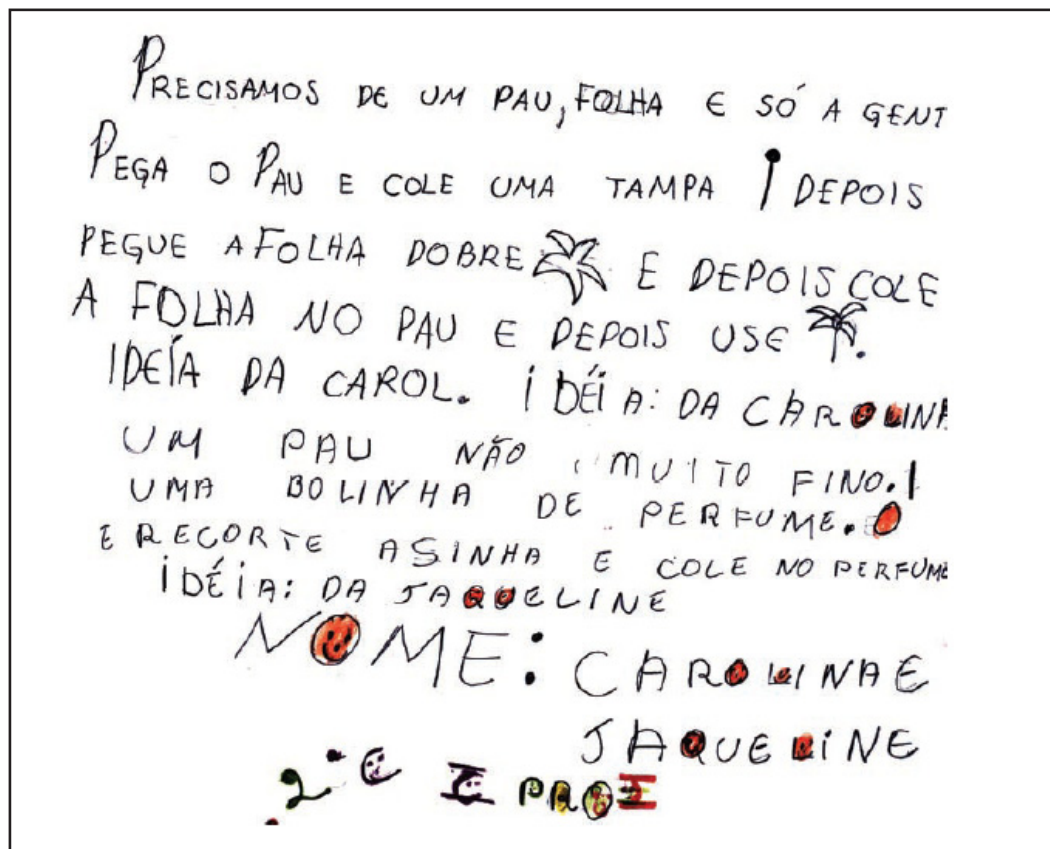 PRECISAMOS DE UM PAU, FOLHA E SÓ A GENT
PEGA O PAU E COLE UMA TAMPA DEPOIS
PEGUE A FOLHA DOBRE E DEPOIS COLE
A FOLHA NO PAU E DEPOIS USE.
IDEÍA DA CAROL. IDÉIA: DA CAROLINA
UM PAU NÃO MUITO FINO.
UMA BOLINHA DE PERFUME.
E RECORTE ASINHA E COLE NO PERFUME
IDÉIA: DA JAQUELINE
NOME: CAROLINA E
JAQUELINE
2º C